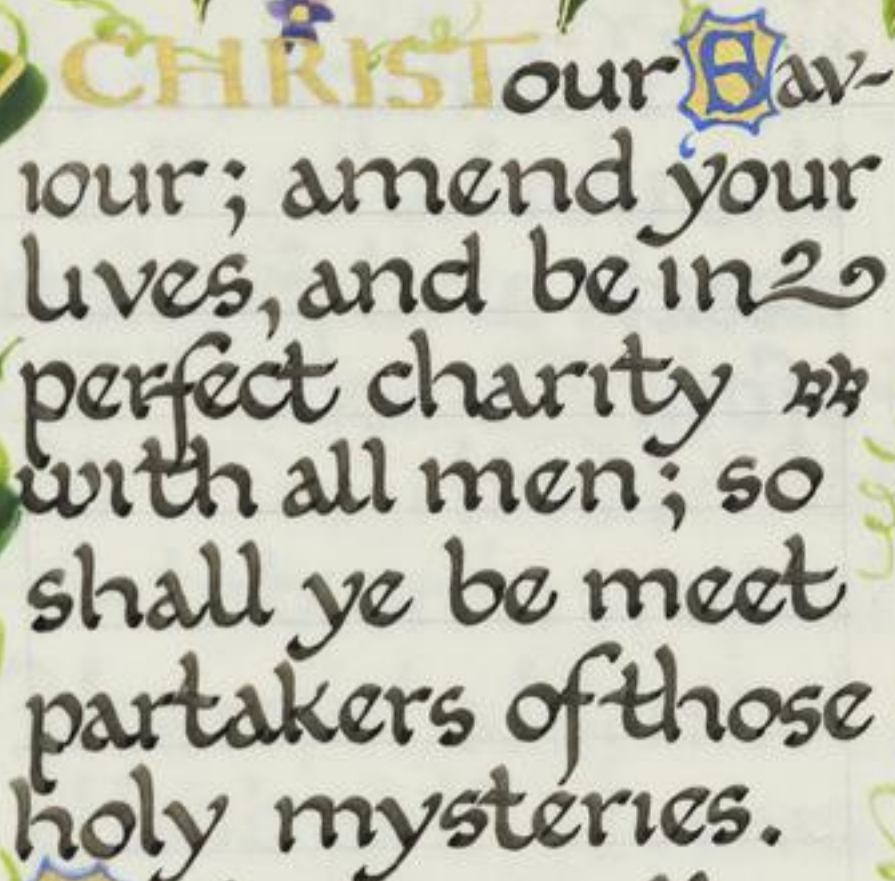 CHRIST our Sav-
iour; amend your
lives, and be in
perfect charity
with all men; so
shall ye be meet
partakers of those
holy mysteries.